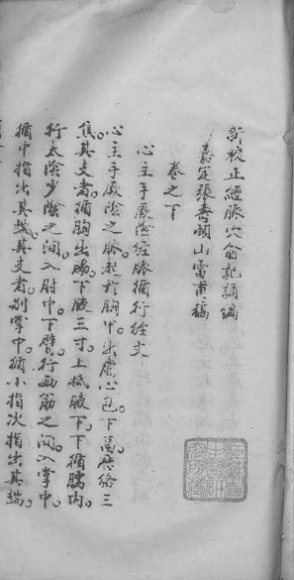 新校正經脈穴俞記誦編
嘉定張壽頤山雷甫稿
卷之下
心主手厥陰經脈循行經文
心主手厥陰之脈。起於胸中。出屬心包。下膈。歷絡三
焦。其支者。循胸出脇。下腋三寸。上抵腋下。下循臑内。
行太陰少陰之间。入肘中。下臂。行兩筋之间。入掌中。
循中指出其端。其支者。別掌中。循小指次指出其端。